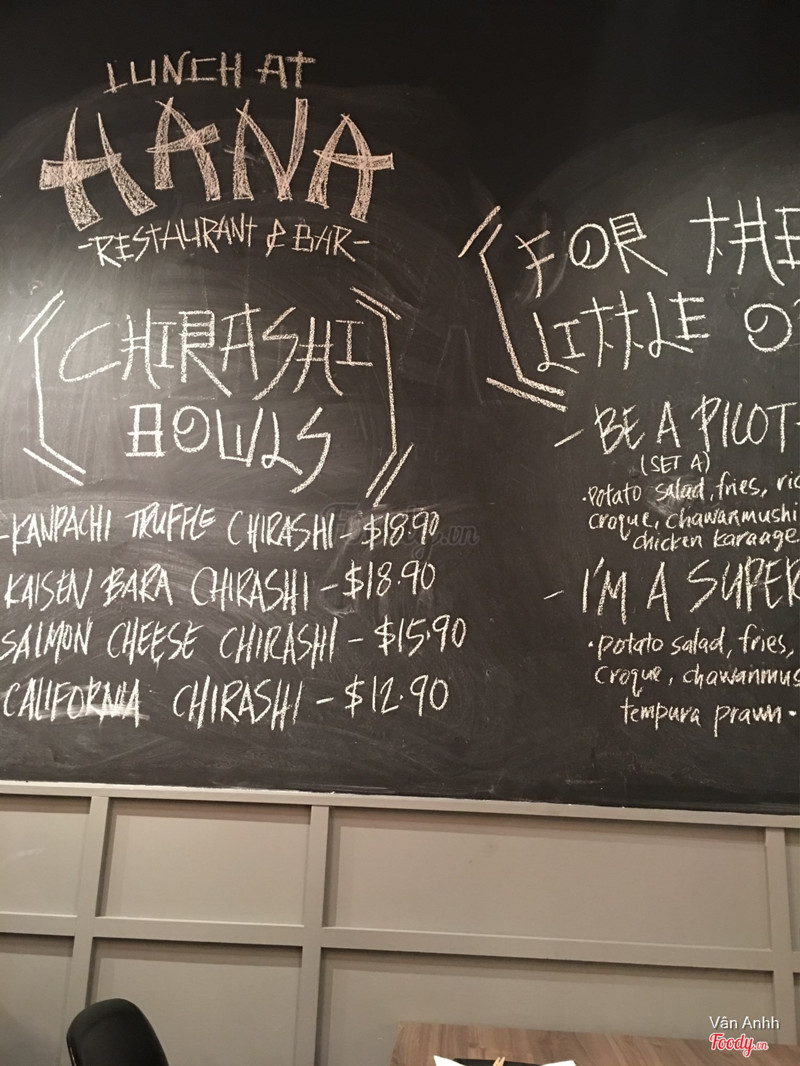 LUNCH AT
HANA
-RESTAURANT & BAR-
CHIRASHI
BOWLS
-KANPACHI TRUFFLE CHIRASHI- $18.90
KAISEN BARA CHIRASHI - $18.90
SALMON CHEESE CHIRASHI - $15.90
CALIFORNIA CHIRASHI - $12.90
FOR THE
LITTLE
- BE A PILOT-
(SET A)
•potato salad, fries,
croque, chawanmushi
chicken karaage.
- I'M A SUPER
•potato salad, fries,
croque, chawanmus
tempura prawn.
Foody.vn
Vân Anhh
Foody.vn